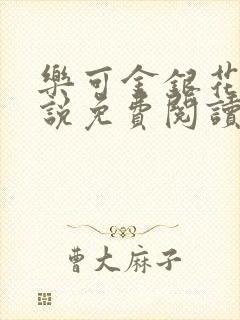 樂可金銀花
說免費閱讀
曹大麻子